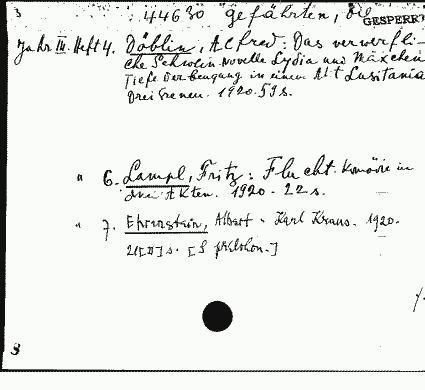 44630 gefährten, Die
GESPERRT
Jahr III. Heft 4. Döblin, Alfred: Das verwerfli-
che Schwein. Novelle Lydia und Mäxchen
Tiefe Verbeugung in einem Akt Lusitania
Drei Szenen. 1920. 59 s.
" 6. Lampl, Fritz: Flucht. Komödie in
drei Akten. 1920. 22 s.
" 7. Ehrenstein, Albert. Karl Kraus. 1920.
21 s.
8